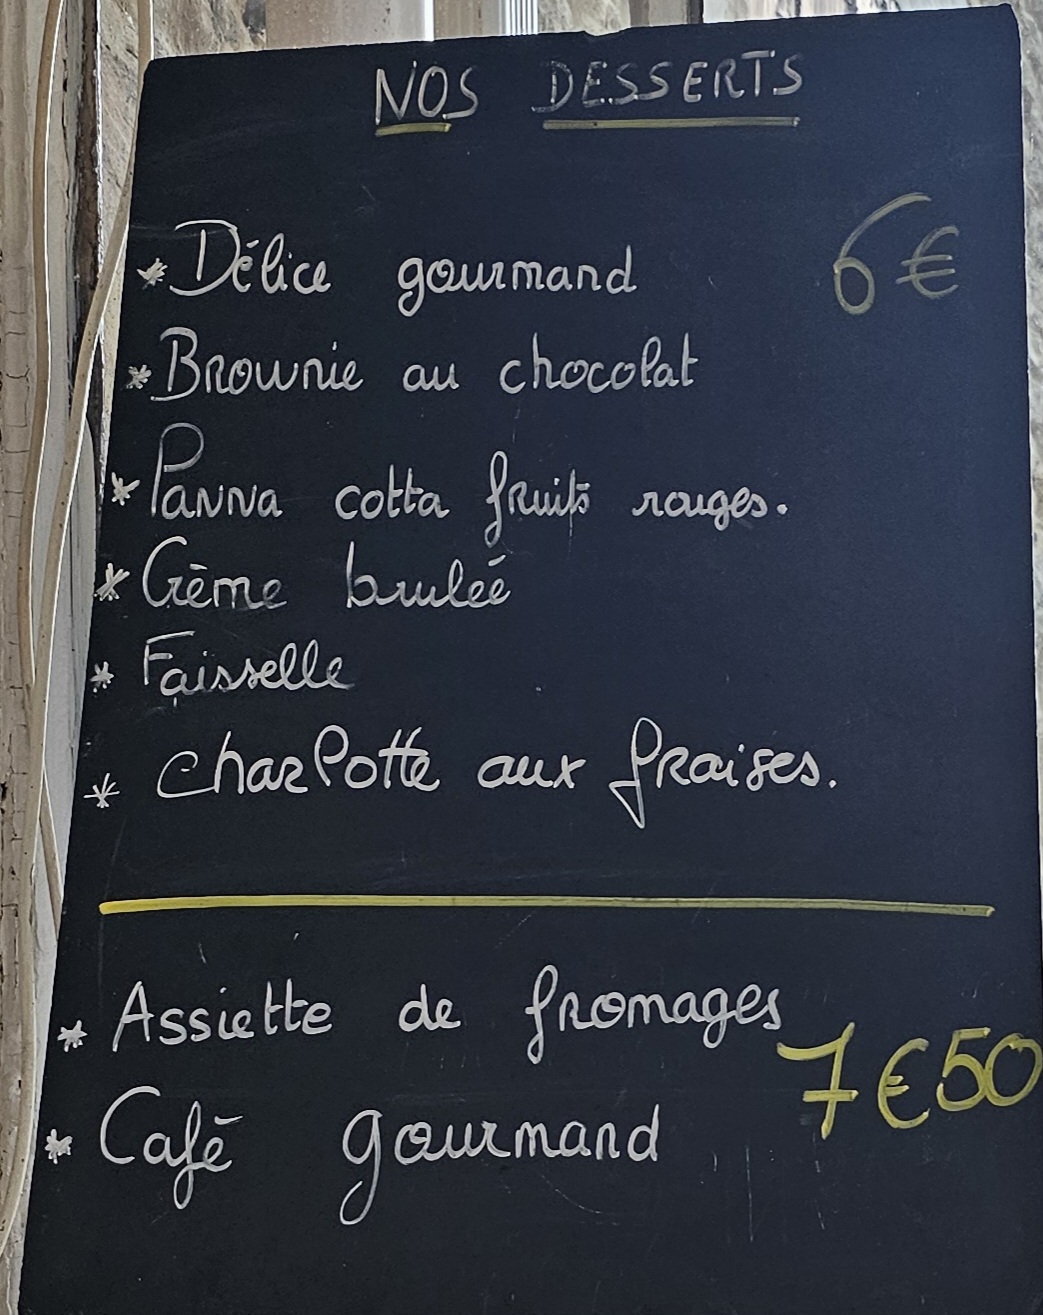 NOS DESSERTS
* Délice gourmand 6€
* Brownie au chocolat
* Panna cotta fruits rouges.
* Crème brulée
* Faisselle
* charlotte aux fraises.
* Assiette de fromages
7€50
* Café gourmand